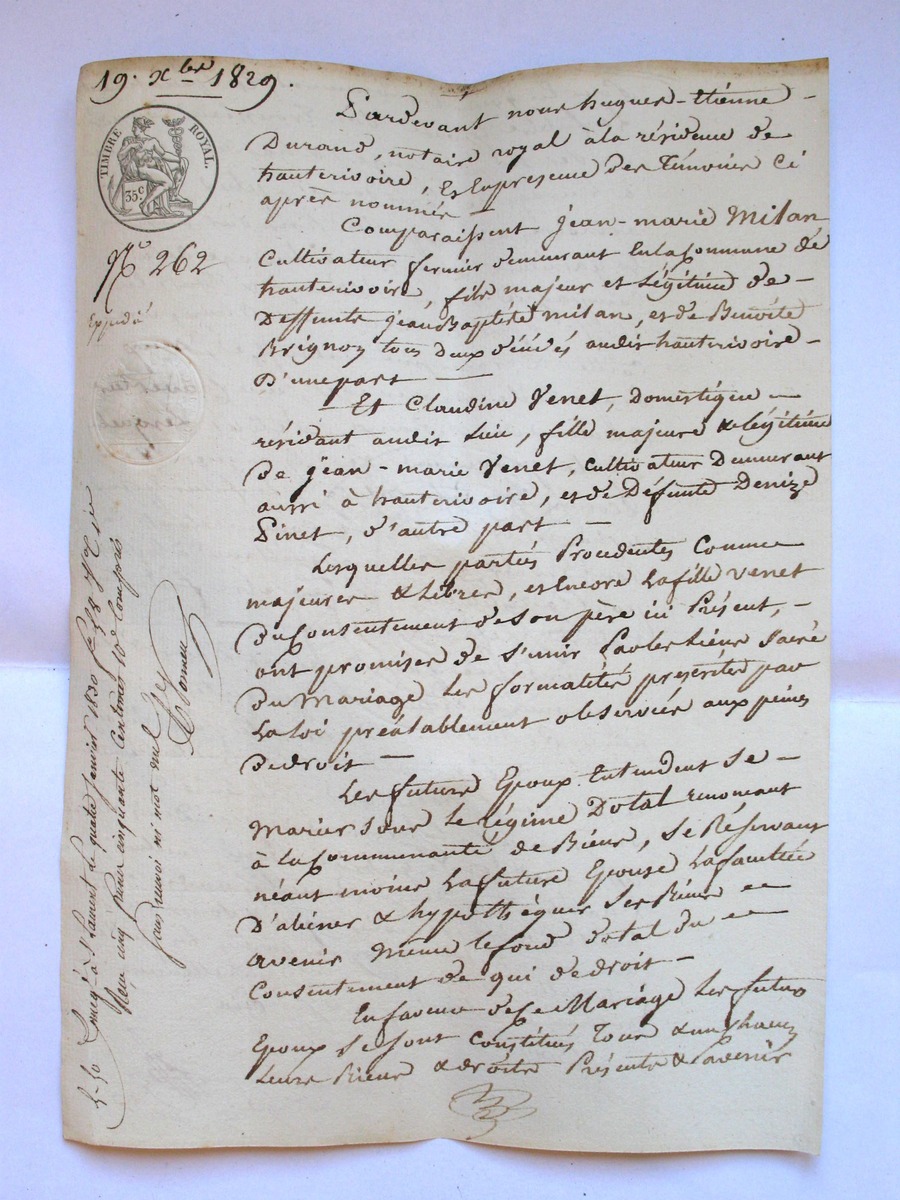 19. Xbre 1829.
TIMBRE ROYAL.
35 c.
No 262
Expédié
Pardevant nous hugues-étienne
Durand, notaire royal à la résidence de
hauterivoire, & en présence des témoins ci
après nommés
Comparaissent jean-marie Milan
Cultivateur fermier demeurant en la Commune de
hauterivoire, fils majeur et Légitime de
Deffunts jean Baptiste Milan, et de Benoîte
Brignon tous deux décédés audit hauterivoire
D'une part
Et Claudine Venet, Domestique
résidant audit Lieu, fille majeure & légitime
de jean-marie Venet, Cultivateur Demeurant
aussi à hauterivoire, et de Défunte Denize
Pinet, d'autre part
Lesquelles parties Procédentes Comme
majeures & Libres, et Encore La fille Venet
du Consentement de son père ici Présent,
ont promises de s'unir Par les Liens Sacré
du Mariage Les formalités présentés par
La Loi préalablement observées aux peines
de droit
Les futurs Epoux Entendent se
Marier sous Le Régime Dotal renoncant
à La Communauté de Biens, se Réservant
néant moins La future Epouse La facultée
D'aliéner & hypothéquer ses Biens
avenir Même le fond dotal du
Consentement de qui de droit
En faveur de Ce Mariage Les futurs
Epoux se sont Constitués Tous & un chacun
Leurs Biens & droits Présents & avenir
à St Laurent le quatre janvier 1830 fo 58
Reçu cinq francs cinquante Centimes 10e Compris
sans renvoi ni mot nul